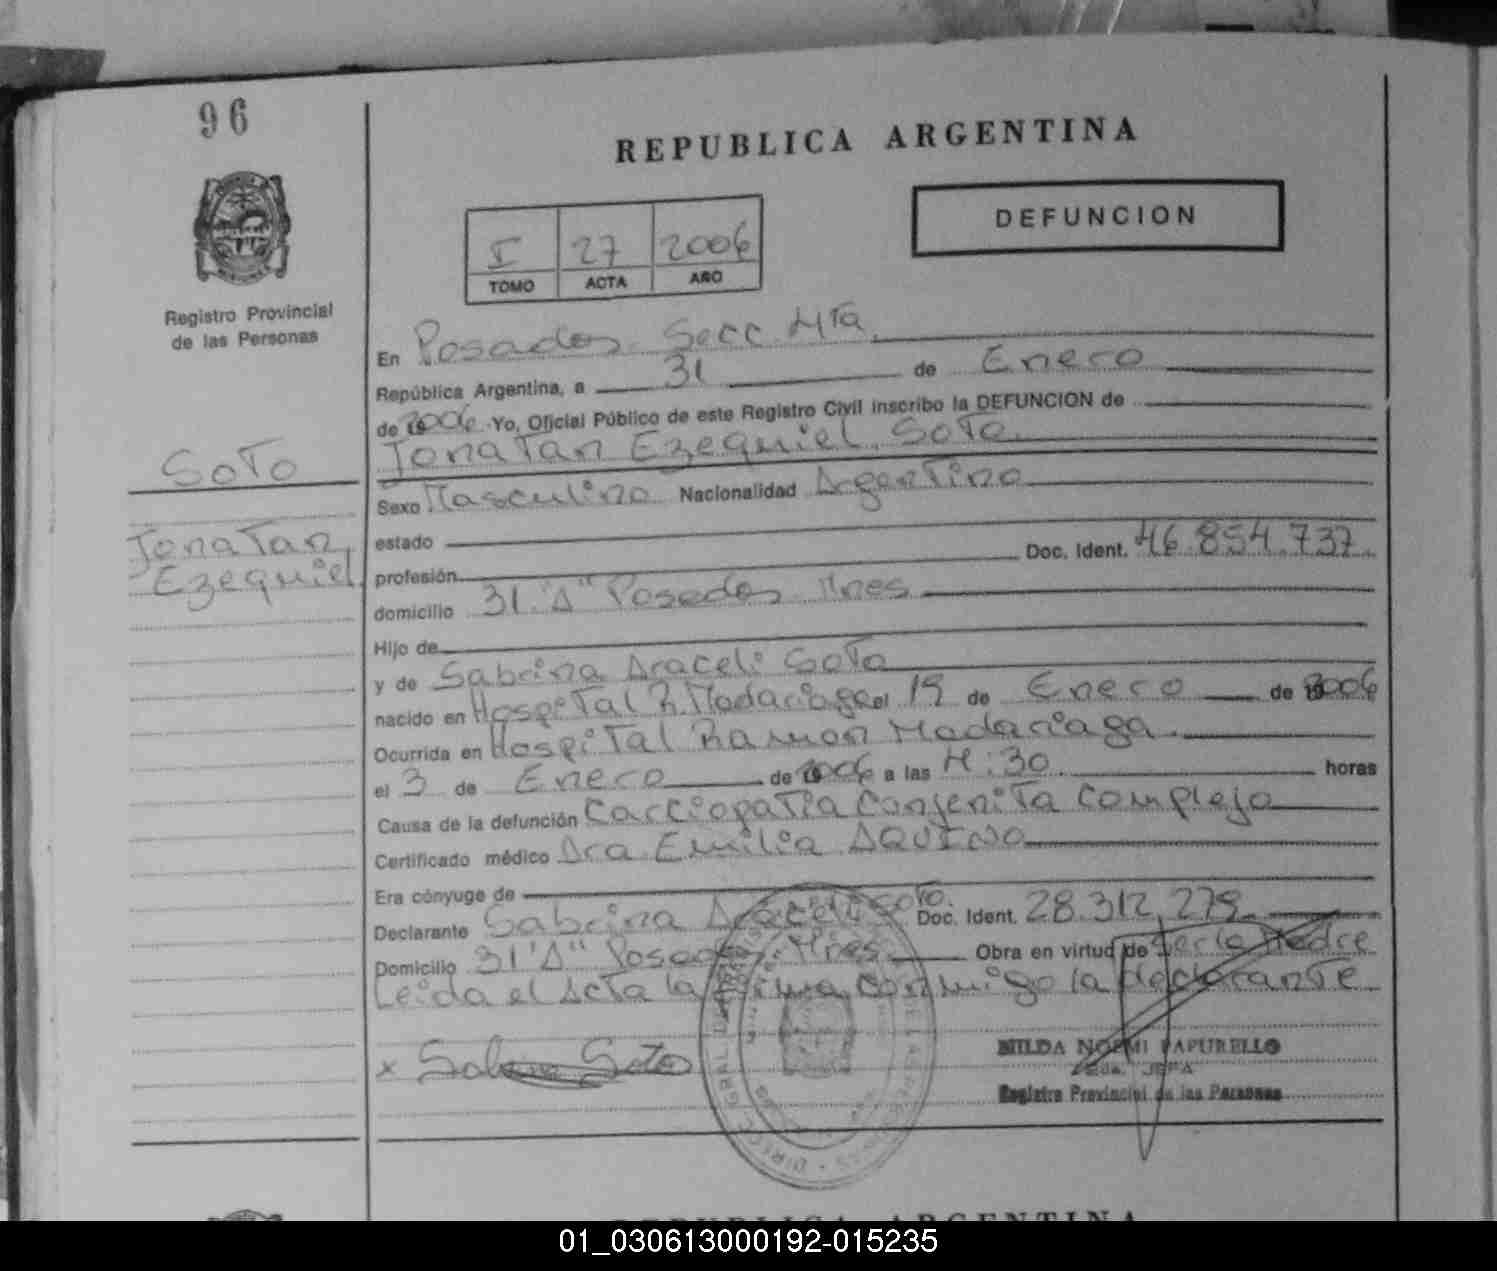 96
REPUBLICA ARGENTINA
DEFUNCION
I 27 2006
TOMO ACTA AÑO
Registro Provincial
de las Personas
En Posadas Secc. 4ta.
República Argentina, a 31 de Enero
de 2006 Yo, Oficial Público de este Registro Civil inscribo la DEFUNCION de
Jonatan Ezequiel Soto
SOTO
Sexo Masculino Nacionalidad Argentino
Jonatan
Ezequiel
estado
Doc. Ident. 46.854.737
profesión
domicilio 31 "A" Posadas Mnes
Hijo de
y de Sabrina Araceli Soto
nacido en Hospital R. Madariaga el 19 de Enero de 2006
Ocurrida en Hospital Ramon Madariaga
el 3 de Enero de 2006 a las :30 horas
Causa de la defunción Carciopatia Conjenita Compleja
Certificado médico Dra Emilia AQUINO
Era cónyuge de
Declarante Sabrina Araceli Soto. Doc. Ident. 28.312.279
Domicilio 31 "A" Posadas Mnes Obra en virtud de ser la Madre
Leida el Acta la firma conmigo la declarante
x Soto
NOEMI PAPURELLO
JEFA
Registro Provincial de las Personas
REPUBLICA ARGENTINA
01_030613000192-015235